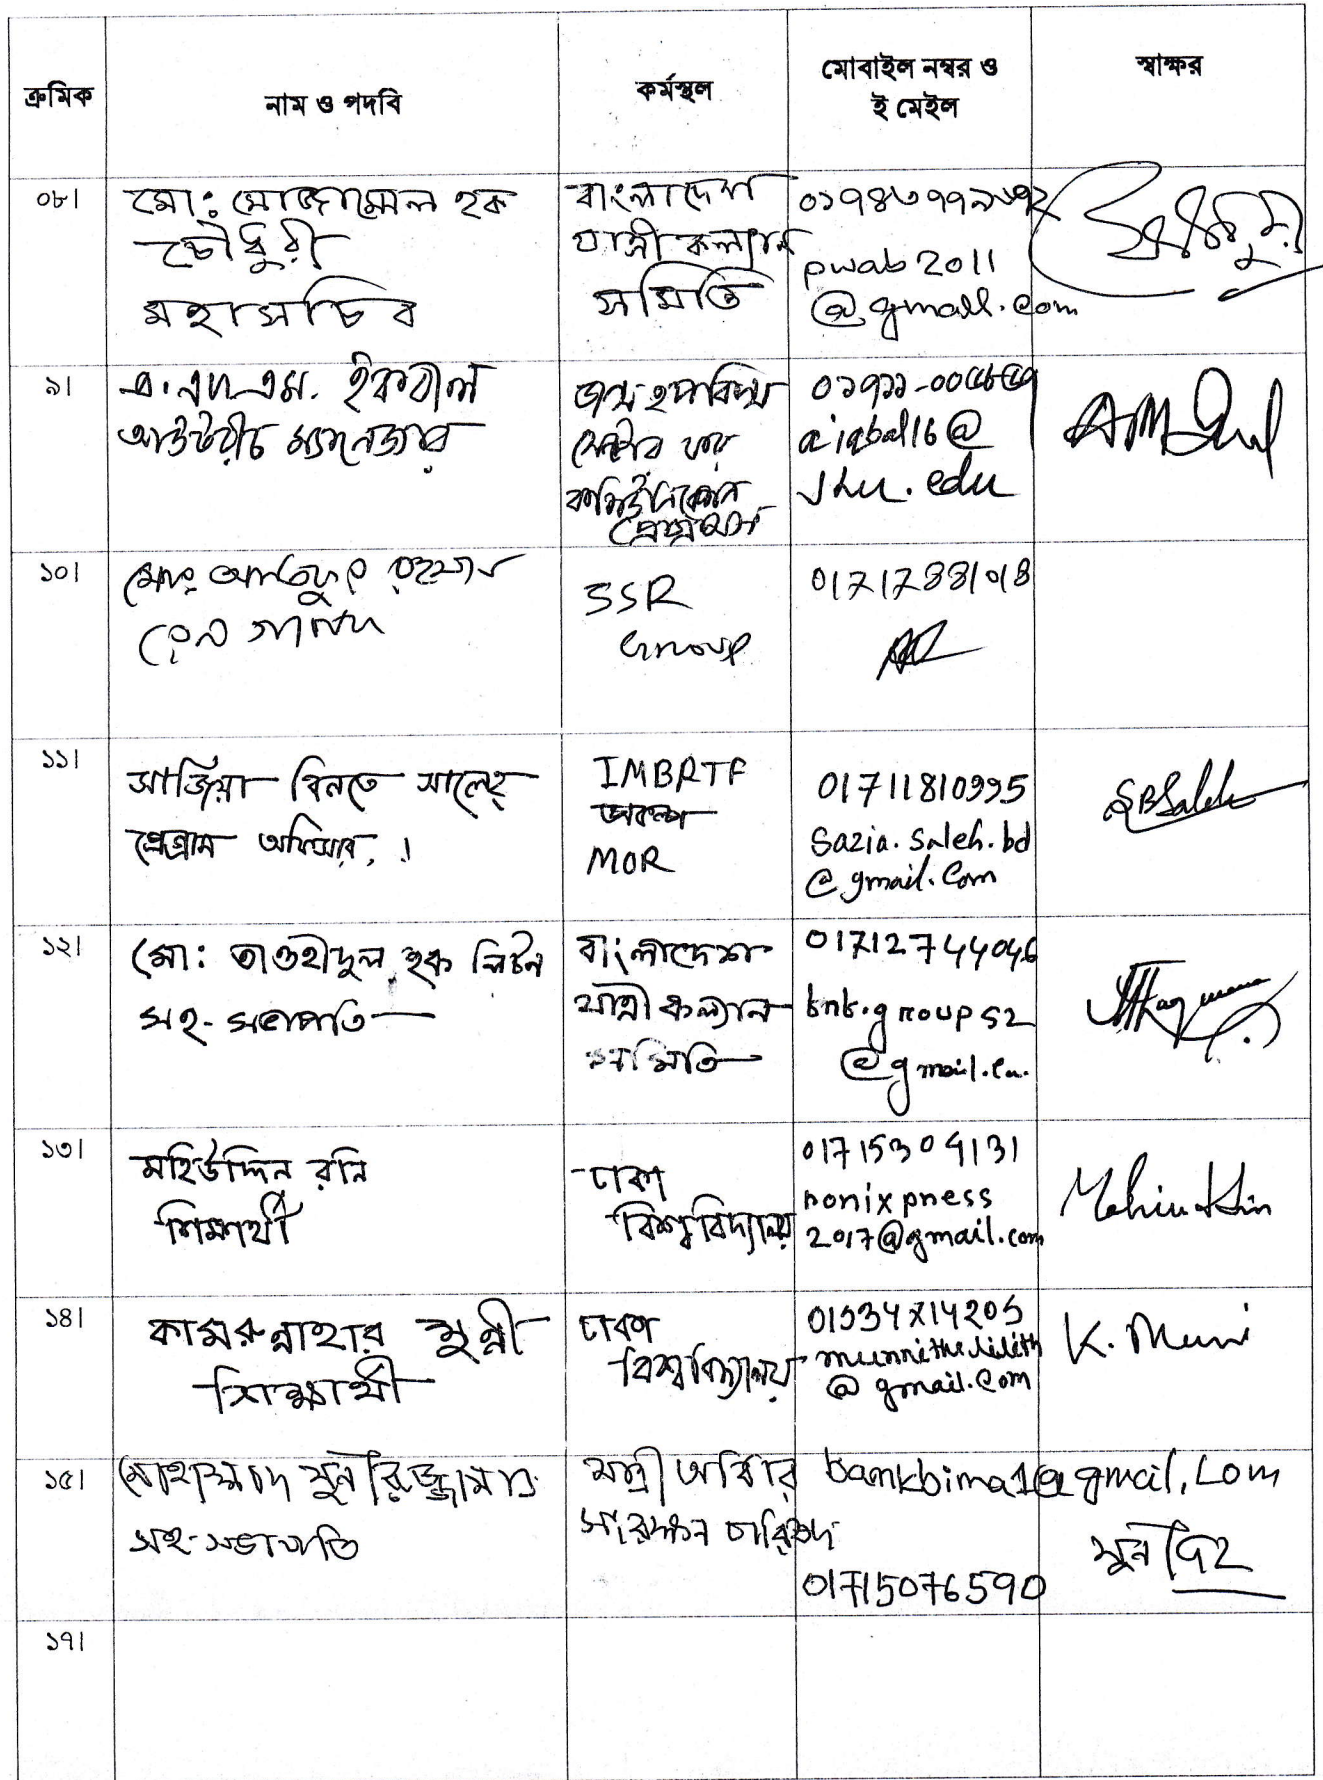 ক্রমিক
নাম ও পদবি
কর্মস্থল
মোবাইল নম্বর ও
ই মেইল
স্বাক্ষর
০৮।
মো: মোজাম্মেল হক
চৌধুরী
মহাসচিব
বাংলাদেশ
যাত্রী কল্যান
সমিতি
pwab2011
@gmail.com
৯।
এ.এম. ইকবাল
আউটরীচ ম্যানেজার
জনস হপকিন্স
সেন্টার ফর
কমিউনিকেশন
প্রোগ্রামস
a.iqbal16@
jhu.edu
১০।
SSR
Group
01717881018
১১।
সাজিয়া বিনতে সালেহ্
প্রোগ্রাম অফিসার,।
IMBRTF
প্রকল্প
MOR
01711810995
Sazia.saleh.bd
@gmail.com
SBSaleh
১২।
মো: তাওহীদুল হক লিটন
সহ-সভাপতি
বাংলাদেশ
যাত্রী কল্যান
সমিতি
01712744046
tnt.group52
@gmail.com
১৩।
মহিউদ্দিন রনি
শিক্ষার্থী
ঢাকা
বিশ্ববিদ্যালয়
ronixpress
2017@gmail.com
Mohiuddin
১৪।
কামরুন্নাহার মুন্নী
শিক্ষার্থী
ঢাকা
বিশ্ববিদ্যালয়
munnithelilith
@gmail.com
K. Munni
১৫।
মোহাম্মদ মুনিরুজ্জামান
সহ-সভাপতি
যাত্রী অধিকার
সংরক্ষন পরিষদ
bamkbima1@gmail.com
01715076590
মুনির
১৭।